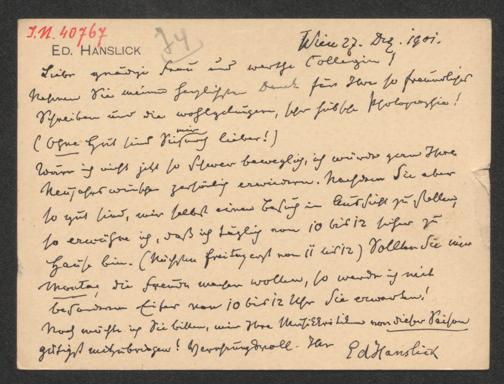 I.N. 40767
ED. HANSLICK
74
Wien 27. Dez. 1901.
Liebe gnädige Frau und werthe Collegin!
Nehmen Sie meinen herzlichsten Dank für Ihr so freundliches
Schreiben und die wohlgelungene, sehr hübsche Photographie!
(Ohne Hut sind Sie mir lieber!)
Wäre ich nicht jetzt so schwer beweglich, ich würde gern Ihre
Neujahrswünsche persönlich erwiedern. Nachdem Sie aber
so gut sind, mir selbst einen Besuch in Aussicht zu stellen,
so erwähne ich, daß ich täglich von 10 bis 12 sicher zu
Hause bin. (Nächsten Freitag erst von 11 bis 12) Sollten Sie mir
Montag die Freude machen wollen, so werde ich mit
besonderem Eifer von 10 bis 12 Uhr Sie erwarten!
Noch möchte ich Sie bitten, mir Ihre Musikkritiken von dieser Saison
gütigst mitzubringen! Verehrungsvoll. Ihr Ed Hanslick